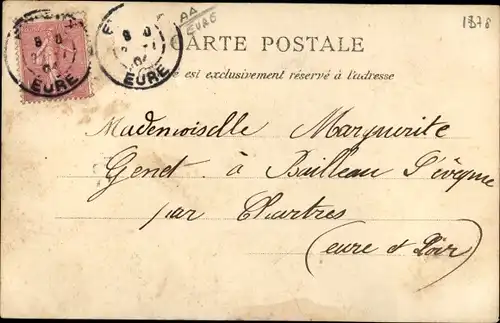 AA
EURE
1378
CARTE POSTALE
est exclusivement réservé à l'adresse
EURE
04
EURE
Mademoiselle Marguerite
Genet à Bailleau l'évêque
par Chartres
(eure et Loir)